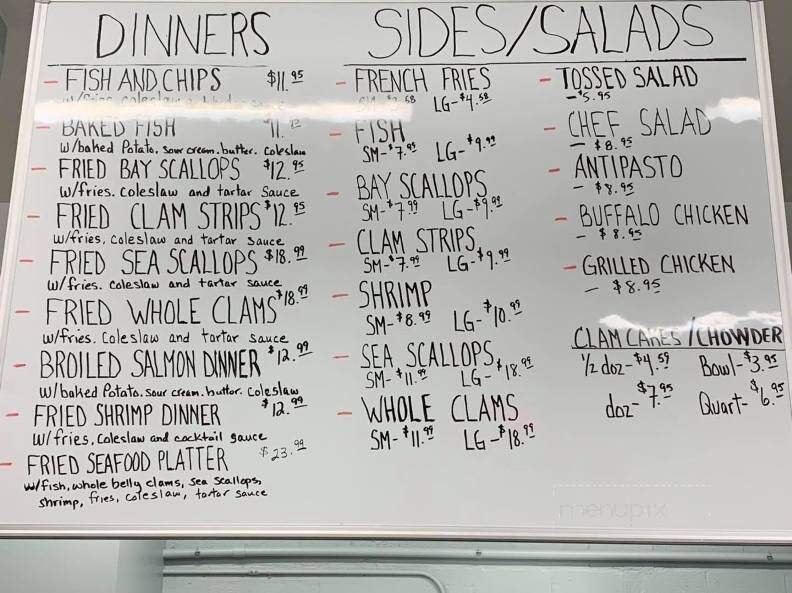 DINNERS
- FISH AND CHIPS $11.95
w/fries, coleslaw
- BAKED FISH
w/baked Potato, sour cream, butter, coleslaw
- FRIED BAY SCALLOPS $12.95
w/fries. coleslaw and tartar sauce
- FRIED CLAM STRIPS $12.95
w/fries, coleslaw and tartar sauce
- FRIED SEA SCALLOPS $18.99
w/fries. coleslaw and tartar sauce
- FRIED WHOLE CLAMS $18.99
w/fries. coleslaw and tartar sauce
- BROILED SALMON DINNER $12.99
w/baked Potato, sour cream, butter, Coleslaw
- FRIED SHRIMP DINNER $12.99
w/fries, coleslaw and cocktail sauce
- FRIED SEAFOOD PLATTER $23.99
w/fish, whole belly clams, sea scallops,
shrimp, fries, coleslaw, tartar sauce
SIDES/SALADS
- FRENCH FRIES
LG-$4.58
- FISH
SM-$7.99 LG-$9.99
- BAY SCALLOPS
SM-$7.99 LG-$9.99
- CLAM STRIPS
SM-$7.99 LG-$9.99
- SHRIMP
SM-$8.99 LG-$10.99
- SEA SCALLOPS
SM-$11.99 LG-$18.99
- WHOLE CLAMS
SM-$11.99 LG-$18.99
- TOSSED SALAD
- $5.95
- CHEF SALAD
- $8.95
- ANTIPASTO
- $8.95
- BUFFALO CHICKEN
- $8.95
- GRILLED CHICKEN
- $8.95
CLAM CAKES/CHOWDER
1/2 doz-$4.59 Bowl-$3.95
doz-$7.95 Quart-$6.95
menupix